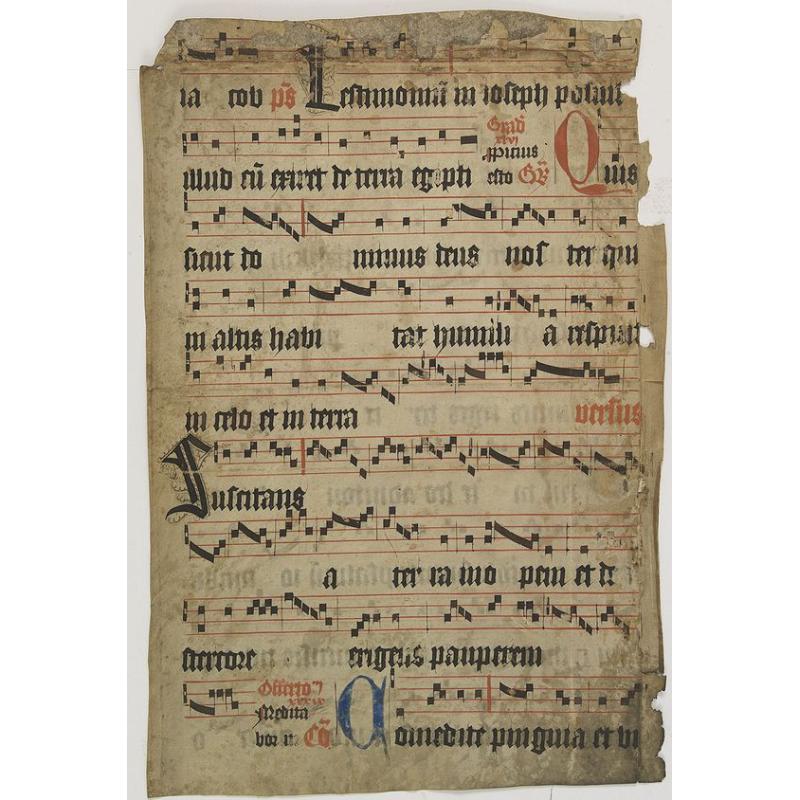 ia cob ps Testimoniũ in ioseph posuit
illud cũ exiret de terra egipti
Grad
xlvj
ppicius
esto Gr Quis
sicut do minus deus nos ter qui
in altis habi tat humili a respicit
in celo et in terra versus
Suscitans
a ter ra ino pem et de
stercore erigens pauperem
Offerto
xxxix
Medita
bor in Cõ Comedite pinguia et bi